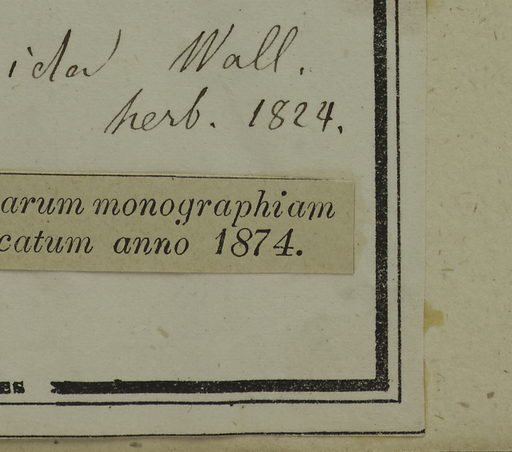 ida Wall.
herb. 1824.
arum monographiam
catum anno 1874.
ES